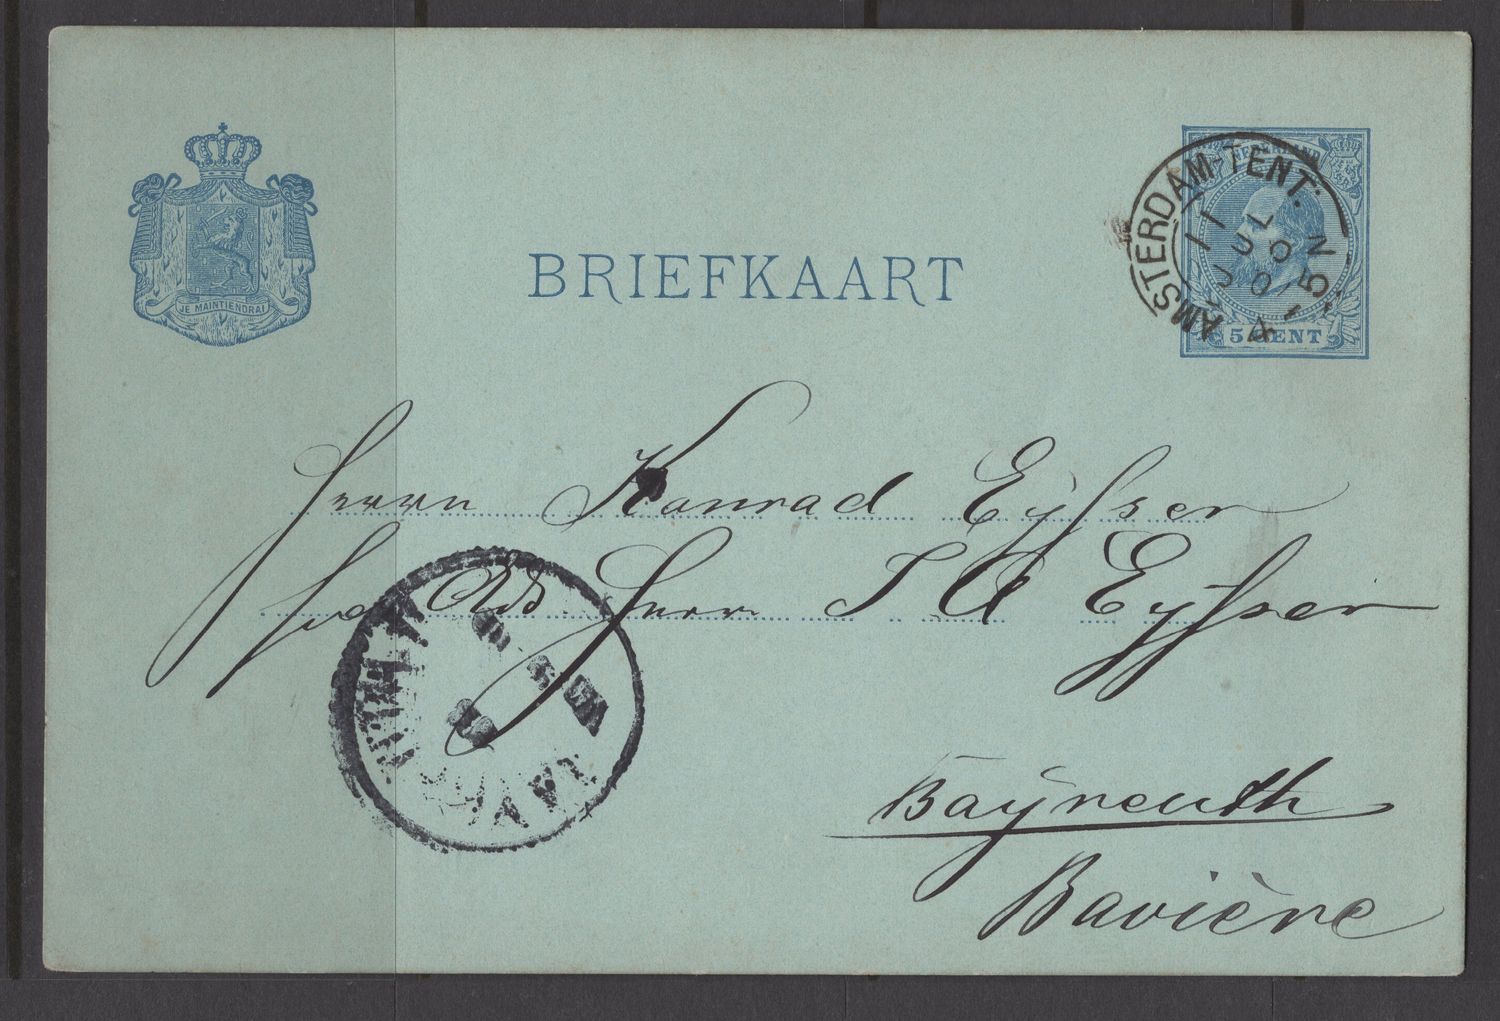 JE MAINTIENDRAI
BRIEFKAART
NEDERLAND
5 CENT
AMSTERDAM-TENT:
11
JUL
4-5N
Herrn Konrad Eyßer
Ads. Herr J A Eyßer
Bayreuth
Bavière